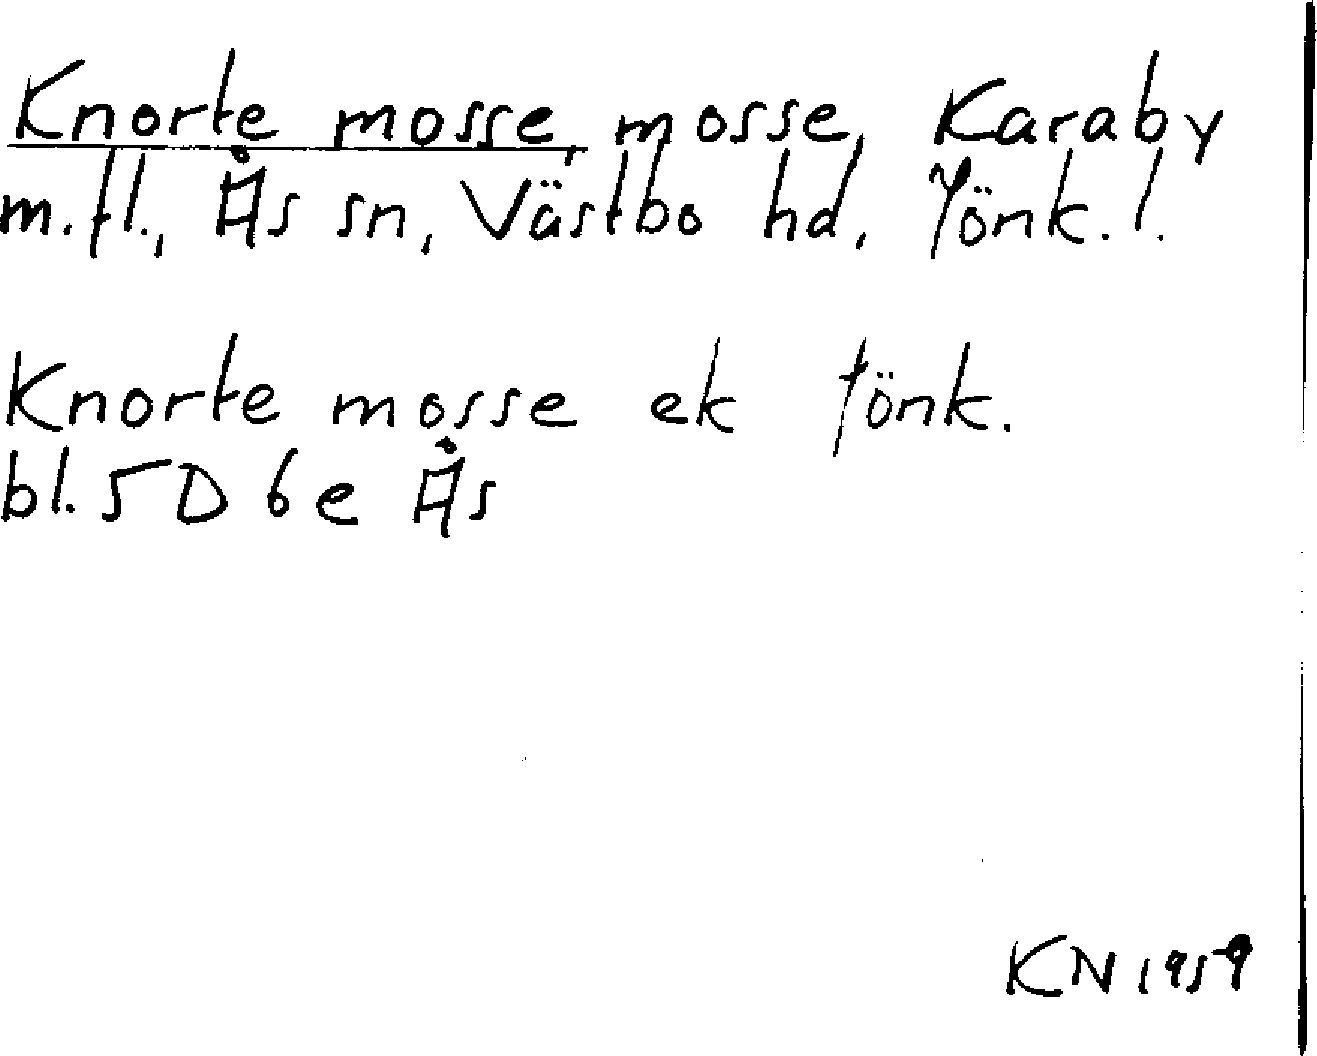 Knorte mosse, mosse, Karaby
m.fl., Ås sn, Västbo hd, Jönk.l.
Knorte mosse ek Jönk.
bl. 5D 6e Ås
KN 1959